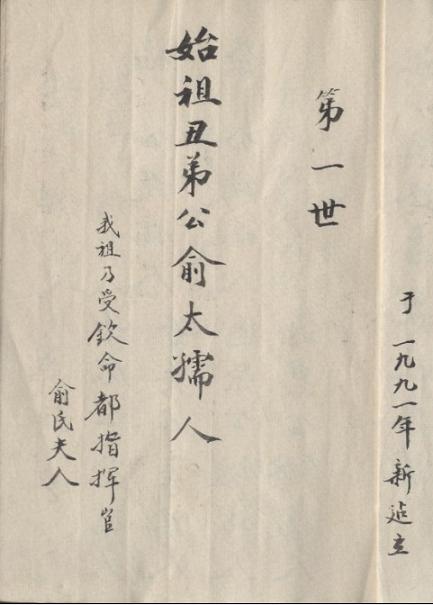 于一九九一年新迠立
第一世
始祖丑弟公俞太孺人
我祖乃受欽命都指挥官
俞氏夫人